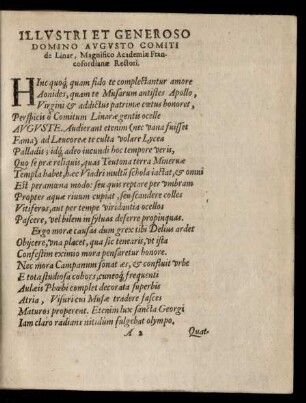 ILLVSTRI ET GENEROSO
DOMINO AVGVSTO COMITI
de Linar, Magnifico Academiæ Fran-
cofordianæ Rectori.
HInc quoq; quam fido te complectantur amore
Aonides, quam te Musarum antistes Apollo,
Virgini & addictus patrimæ cœtus honoret,
Perspicis ô Comitum Linaræ gentis ocelle
AVGVSTE. Audierant etenim (nec vana fuisset
Fama) ad Leucoreæ te culta volare Lycea
Palladis; idq; adeo iucundi hoc tempore veris,
Quo se præ reliquis, quas Teutona terra Mineruæ
Templa habet, hæc Viadri multũ schola iactat, & omni
Est peramœna modo: seu quis reptare per vmbram
Propter aquæ riuum cupiat, seu scandere colles
Vitiferos, aut per tempe viridantia ocellos
Pascere, vel bilem in syluas deferre propinquas.
Ergo moræ causas dum grex tibi Delius ardet
Obijcere, vna placet, qua sic tenearis, vt ista
Confestim eximio mora pensaretur honore.
Nec mora Campanum sonat æs, & confluit vrbe
E tota studiosa cohors, cuneoq; frequenti
Aulæis Phœbi complet decorata superbis
Atria, Visuri cui Musæ tradere fasces
Maturos properent. Etenim lux sancta Georgi
Iam claro radians nitidùm fulgebat olympo,
A 2 Quat-